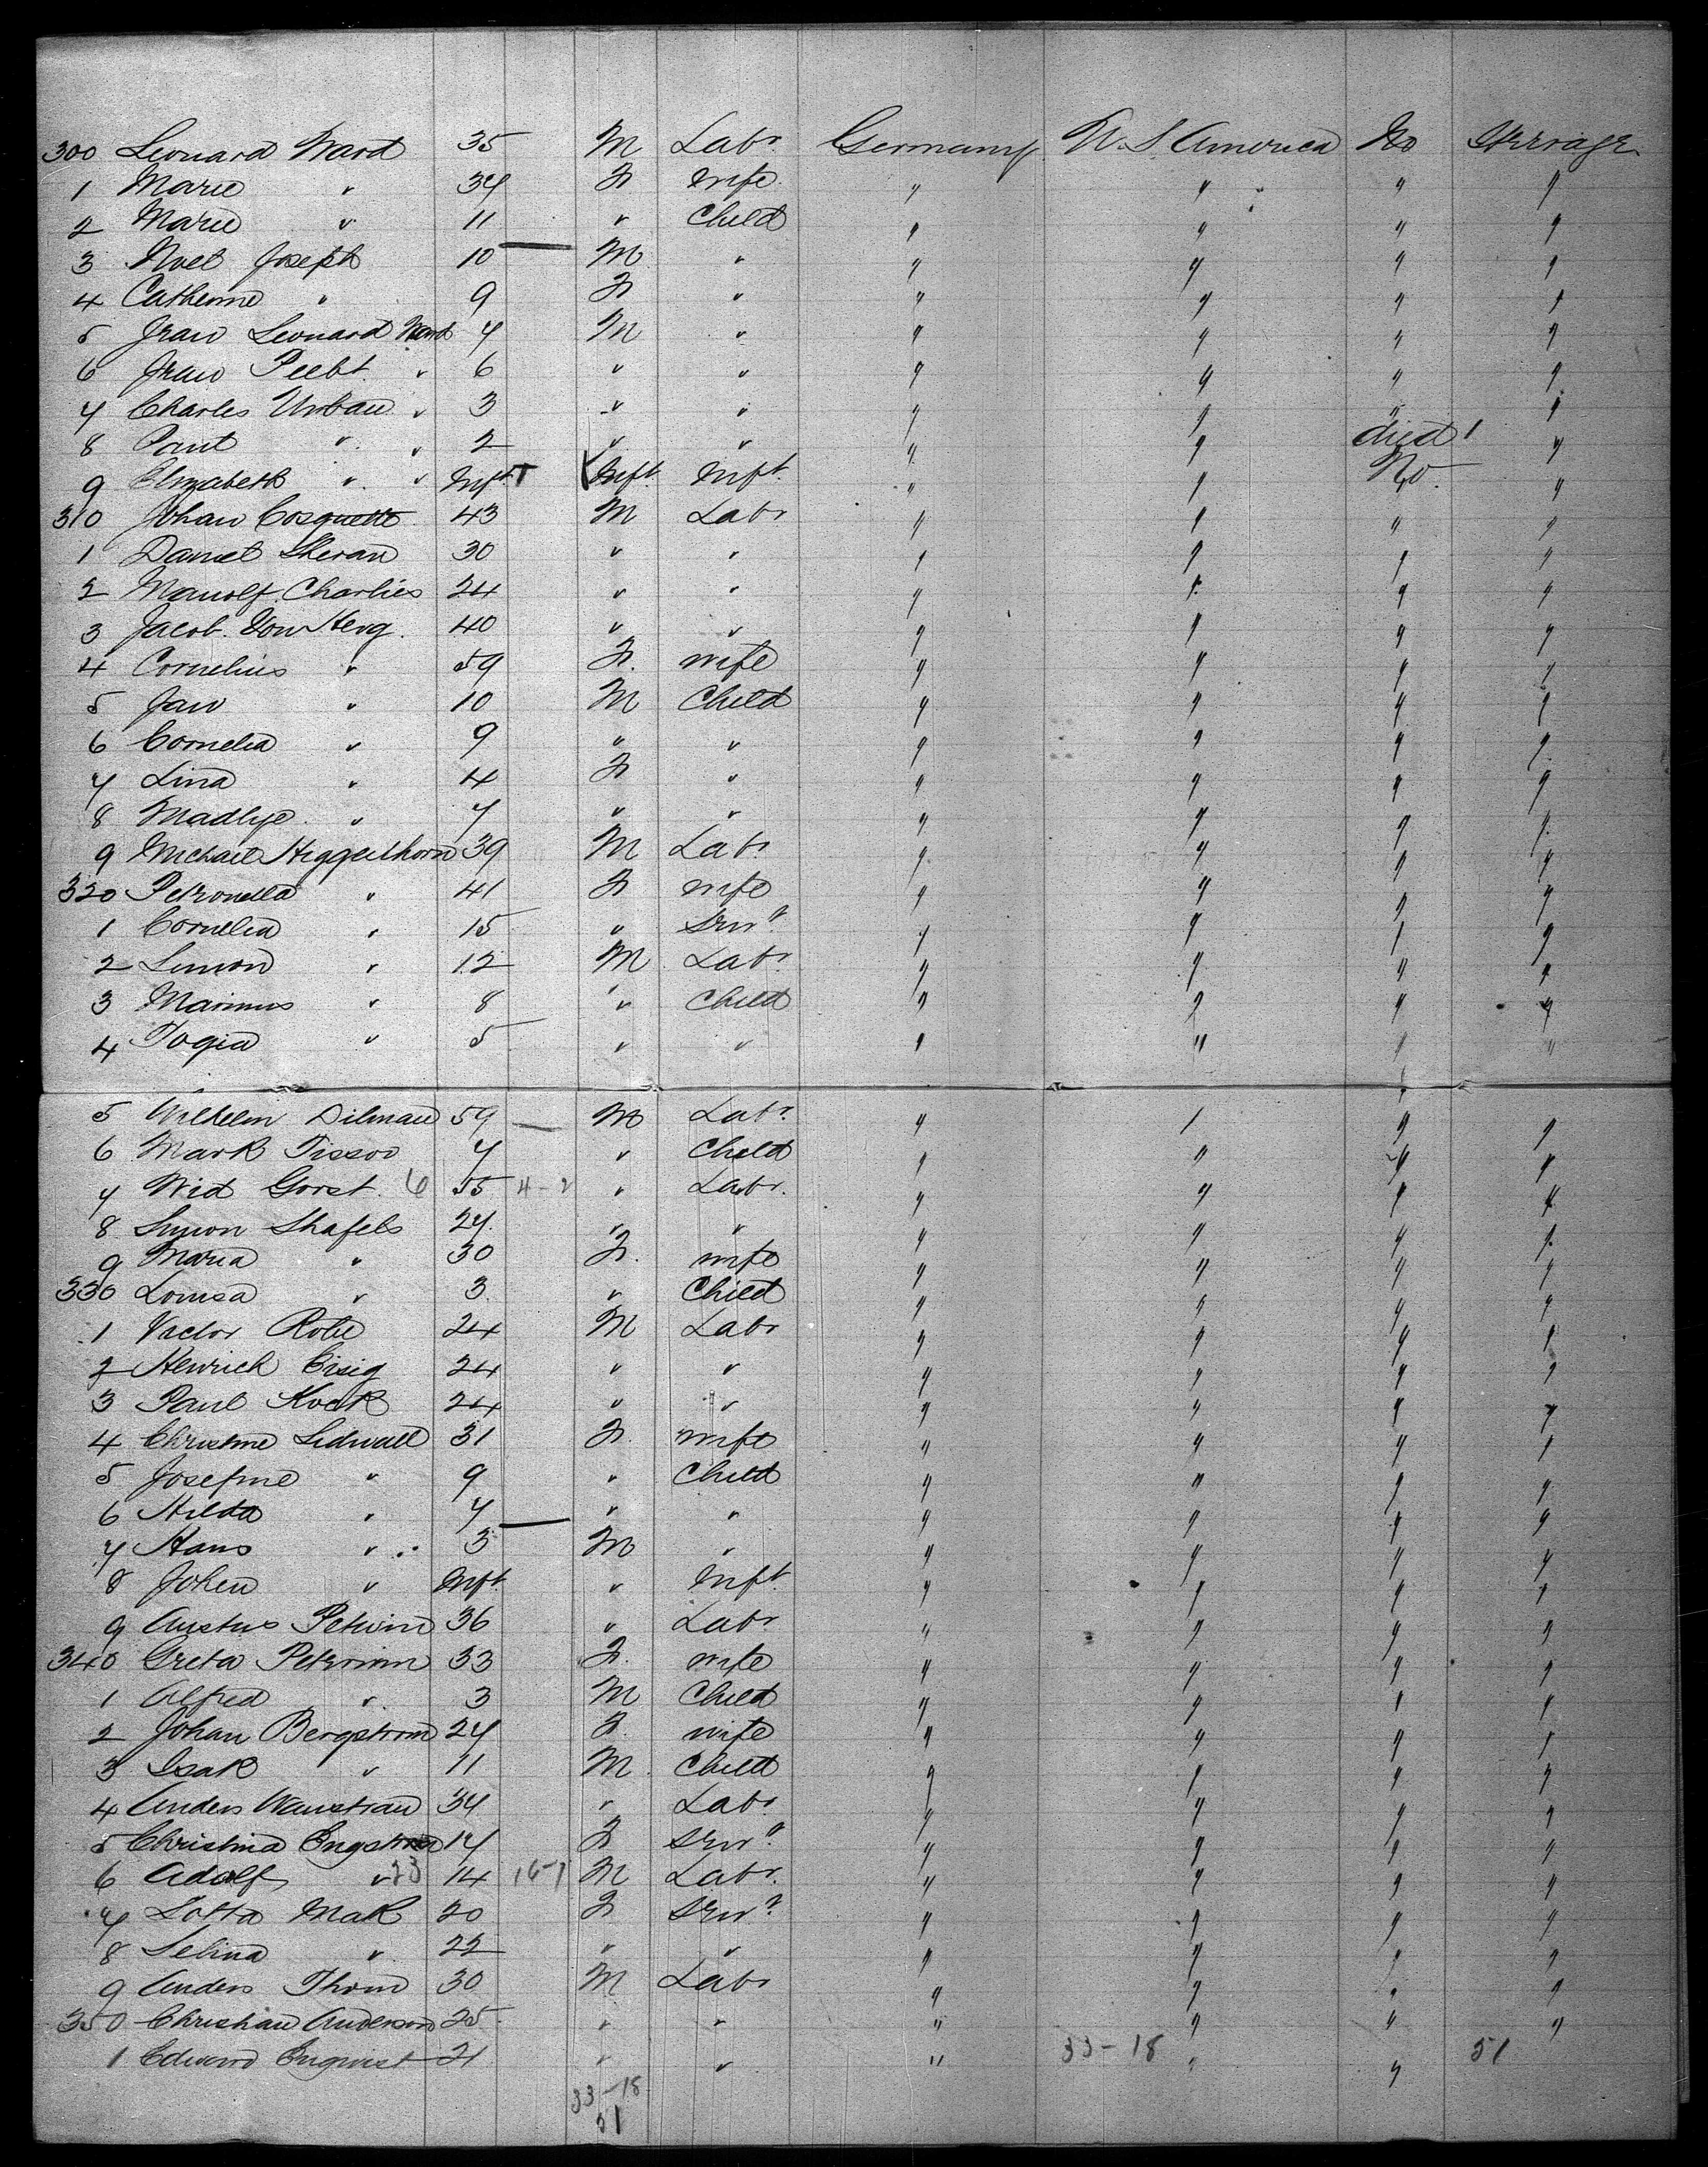 300 Leonard Ward 35 M Labr. Germany U. S. America No Steerage
1 Marie " 34 F. wife " " " "
2 Marie " 11 " Child " " " "
3 Noel Joseph 10 M " " " " "
4 Catherine " 9 F " " " " "
5 Jean Leonard Ward 7 M " " " " "
6 Jean " 6 " " " " " "
7 Charles Urban " 3 " " " " " "
8 Paul " " 2 " " " " died 1 "
9 Elizabeth " " Inft Inft. Inft. " " No. "
310 Johan Cosquette 43 M Labr " " " "
1 Daniel 30 " " " " " "
2 Charlies 24 " " " " " "
3 Jacob. 40 " " " " " "
4 Cornelius " 59 F. wife " " " "
5 Jan " 10 M Child " " " "
6 Cornelia " 9 " " " " " "
7 Lina " 4 F " " " " "
8 " 7 " " " " " "
9 Michael 39 M Labr. " " " "
320 Petronella " 41 F wife " " " "
1 Cornelia " 15 " Servt " " " "
2 Simon " 12 M Labr. " " " "
3 Marinus " 8 " Child " " " "
4 " 5 " " " " " "
5 Wilhelm Dilman 59 M Labr. " " " "
6 Mark Tissov 7 " Child " " " "
7 Wid Gorst. 6 55 4-2 " Labr. " " " "
8 Simon Shafels 27. " " " " " "
9 Maria " 30 F. wife " " " "
330 Louisa " 3 " Child " " " "
1 Victor Robe 24 M Labr " " " "
2 Henrich 24 " " " " " "
3 Paul Kock 24 " " " " " "
4 Christine Lidwall 31 F. wife " " " "
5 Josefine " 9 " Child " " " "
6 Hilda " 7 " " " " " "
7 Hans " 3 M " " " " "
8 Johen " Inft " Inft. " " " "
9 36 " Labr " " " "
340 Greta 33 F. wife " " " "
1 Alfred " 3 M Child " " " "
2 Johan Bergstrom 27 F wife " " " "
3 Isak " 11 M. Child " " " "
4 Anders 34 " Labr. " " " "
5 Christina Engstrom 17 F Servt " " " "
6 Adolf " 23 14 16-1 M Labr. " " " "
7 Lotta Mak 20 F Servt " " " "
8 Selina " 22 " " " " " "
9 Anders Thom 30 M Labr " " " "
350 Christian Anderson 25 " " " " " "
1 Edward Engwist 21 " " " 33-18 " " 51
33-18
51